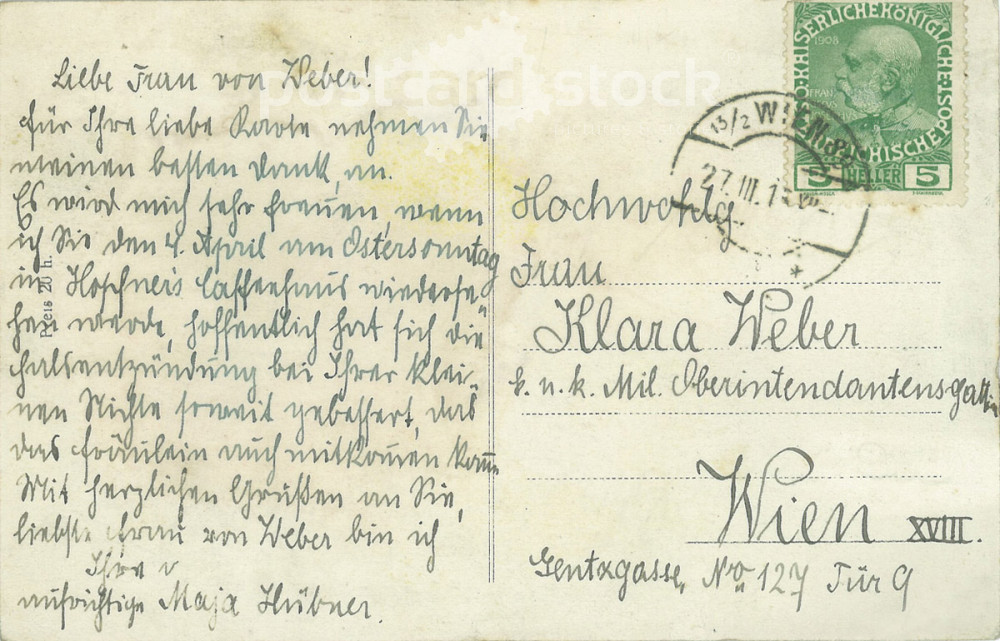 Liebe Frau von Weber!
Für Ihre liebe Karte nehmen Sie
meinen besten Dank, an.
Es wird mich sehr freuen, wenn
ich Sie den 4. April am Ostersonntag
in Höschners Caffeehaus wiederse-
hen werde, hoffentlich hat sich die
Halsentzündung bei Ihrer klei-
nen Nichte soweit gebessert, das
das Fräulein auch mitkom̅en kan̅.
Mit herzlichen Grüßen an Sie,
liebste Frau von Weber bin ich
Ihre
aufrichtige Maja Hübner.
Preis 20 h.
postcard stock
KAISERLICHE KÖNIGLICHE
ÖSTERREICHISCHE POST
1908
FRANZ
5 HELLER 5
13/2 WIEN
27.III.1
Hochwohlg.
Frau
Klara Weber
k. u. k. Mil. Oberintendantensgattin
Wien XVIII.
Gentzgasse, No 127 Tür 9